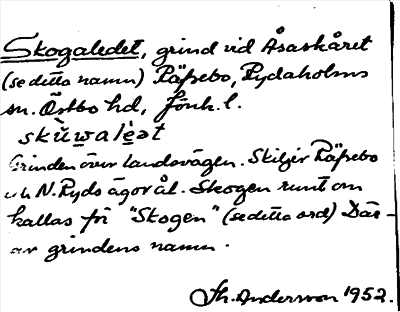 Skogaledet, grind vid Åsaskåret
(se detta namn) Räfsebo, Rydaholms
sn. Östbo hd, Jönk. l.
skùwalèat
Grinden över landsvägen. Skiljer Räfsebo
och N. Ryds ägor åt. Skogen runt om
kallas fri "Skogen" (se detta ord) Där-
av grindens namn.
Th. Andersson 1952.